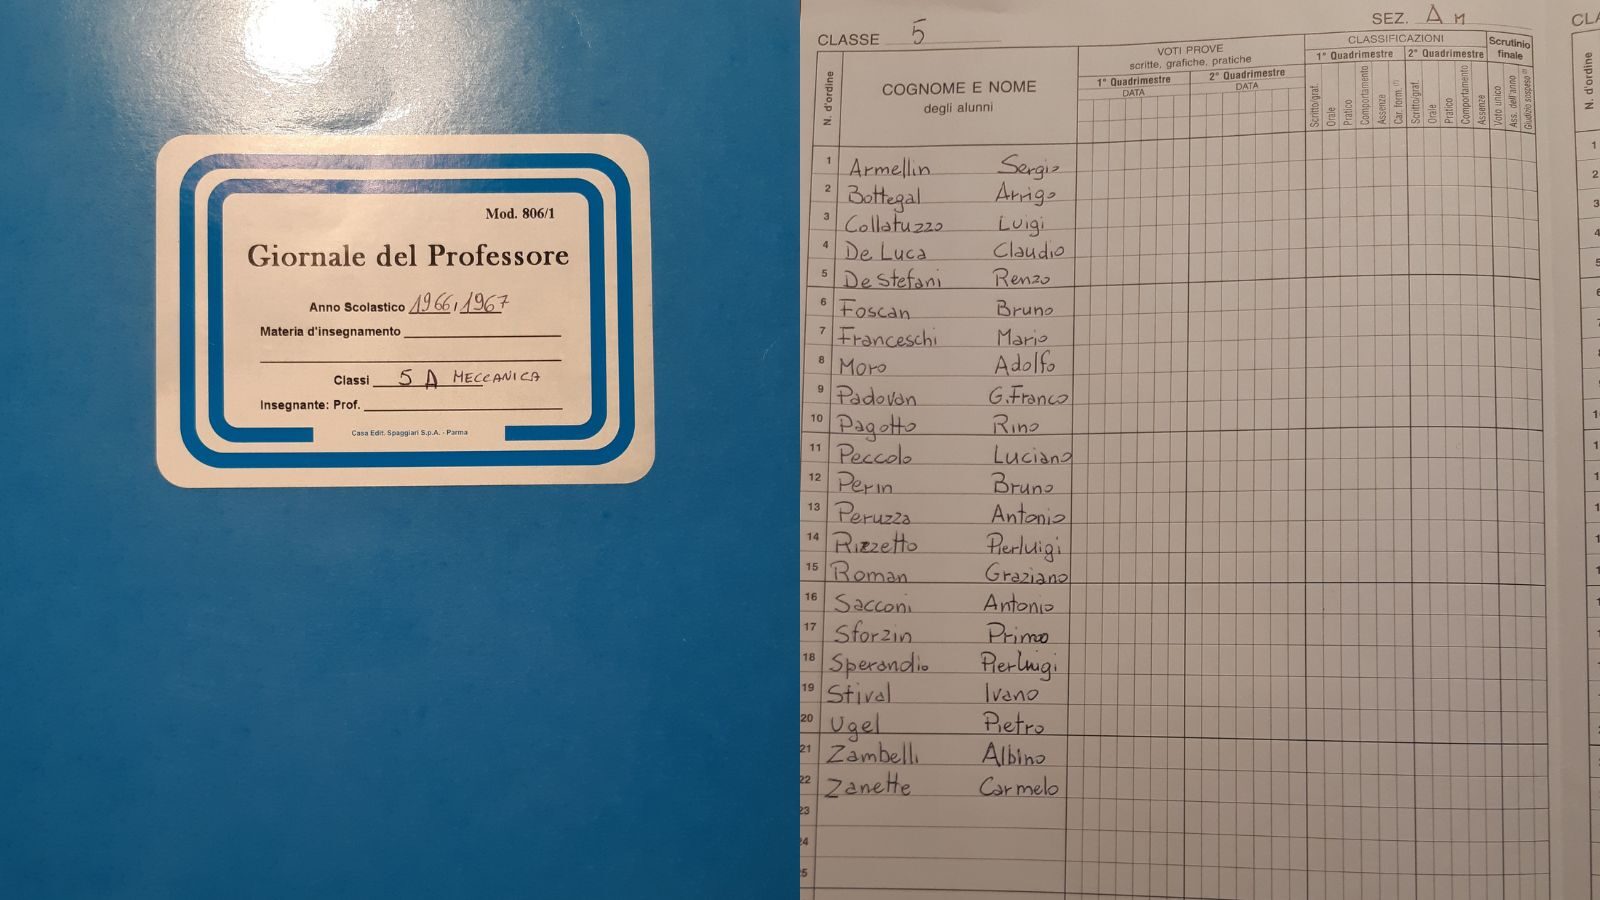 Mod. 806/1
Giornale del Professore
Anno Scolastico 1966,1967
Materia d'insegnamento
Classi 5 A MECCANICA
Insegnante: Prof.
Casa Edit. Spaggiari S.p.A. - Parma
CLASSE 5
SEZ. A M
N. d'ordine
COGNOME E NOME
degli alunni
VOTI PROVE
scritte, grafiche, pratiche
1° Quadrimestre
2° Quadrimestre
DATA
DATA
CLASSIFICAZIONI
1° Quadrimestre
2° Quadrimestre
Scrutinio
finale
Scritto/graf.
Orale
Pratico
Comportamento
Assenze
Car. form. (*)
Scritto/graf.
Orale
Pratico
Comportamento
Assenze
Voto unico
Ass. dell'anno
Giudizio sospeso (*)
1 Armellin Sergio
2 Bottegal Arrigo
3 Collatuzzo Luigi
4 De Luca Claudio
5 De Stefani Renzo
6 Foscan Bruno
7 Franceschi Mario
8 Moro Adolfo
9 Padovan G.Franco
10 Pagotto Rino
11 Peccolo Luciano
12 Perin Bruno
13 Peruzza Antonio
14 Rizzetto Pierluigi
15 Roman Graziano
16 Sacconi Antonio
17 Sforzin Primo
18 Sperandio Pierluigi
19 Stival Ivano
20 Ugel Pietro
21 Zambelli Albino
22 Zanette Carmelo
23
24
25
N. d'ordine
1
2
3
4
5